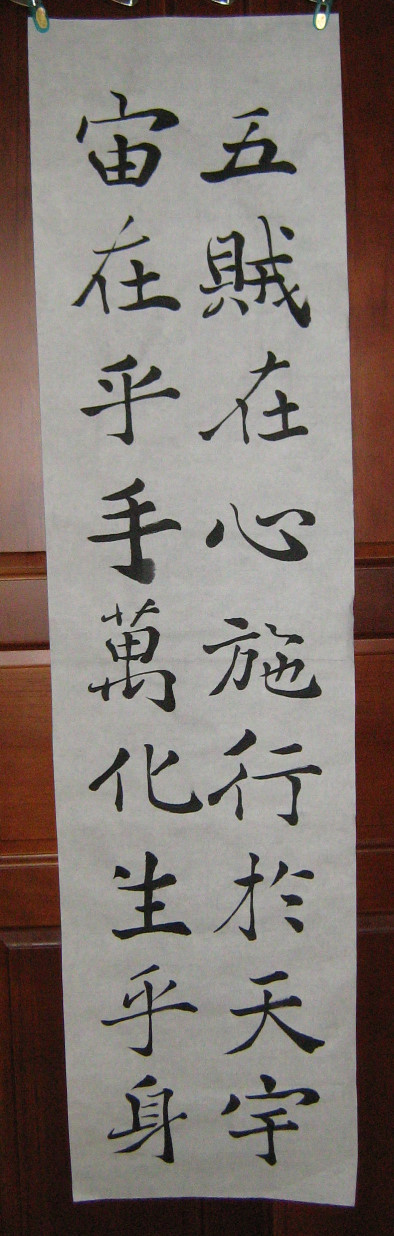 五賊在心施行於天宇
宙在乎手萬化生乎身